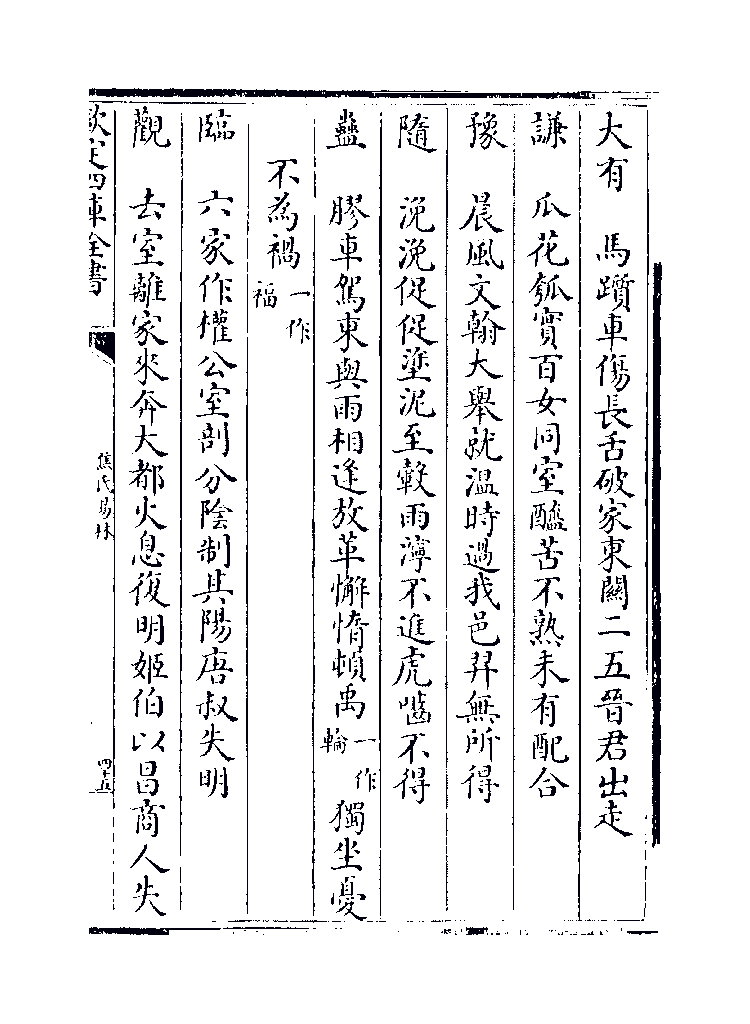 大有　馬躓車傷長舌破家東關二五晉君出走
謙　瓜花瓠實百女同室醯苦不熟未有配合
豫　晨風文翰大舉就溫時過我邑羿無所得
隨　浼浼促促塗泥至轂雨濘不進虎嚙不得
蠱　膠車駕東與雨相逢放革懈惰頓禹一作輪獨坐憂
不為禍一作福
臨　六家作權公室剖分陰制其陽唐叔失明
觀　去室離家來奔大都火息復明姬伯以昌商人失
欽定四庫全書
焦氏易林
四十五